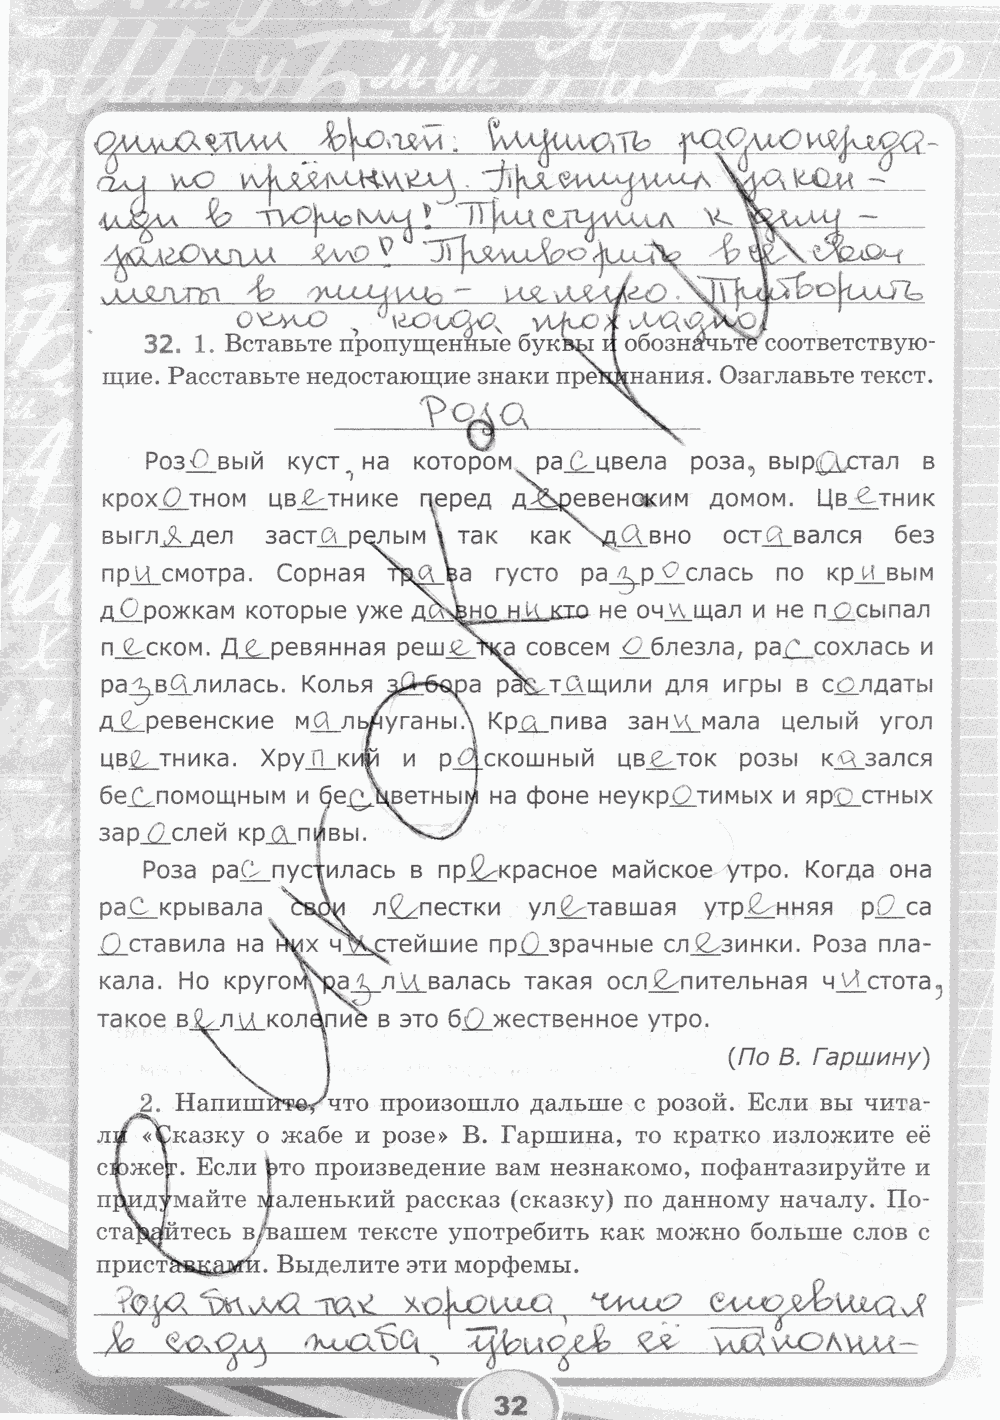 династии врачей. Слушать радиопереда-
чу по приёмнику. Преступил закон -
иди в тюрьму! Приступил к делу -
закончи его! Претворить все свои
мечты в жизнь - нелегко. Притворить
окно, когда прохладно.
32. 1. Вставьте пропущенные буквы и обозначьте соответствую-
щие. Расставьте недостающие знаки препинания. Озаглавьте текст.
Роза
Розовый куст, на котором расцвела роза, вырастал в
крохотном цветнике перед деревенским домом. Цветник
выглядел застарелым так как давно оставался без
присмотра. Сорная трава густо разрослась по кривым
дорожкам которые уже давно никто не очищал и не посыпал
песком. Деревянная решетка совсем облезла, рассохлась и
развалилась. Колья забора растащили для игры в солдаты
деревенские мальчуганы. Крапива занимала целый угол
цветника. Хрупкий и роскошный цветок розы казался
беспомощным и бесцветным на фоне неукротимых и яростных
зарослей крапивы.
Роза распустилась в прекрасное майское утро. Когда она
раскрывала свои лепестки улетавшая утренняя роса
оставила на них чистейшие прозрачные слезинки. Роза пла-
кала. Но кругом разливалась такая ослепительная чистота,
такое великолепие в это божественное утро.
(По В. Гаршину)
2. Напишите, что произошло дальше с розой. Если вы чита-
ли «Сказку о жабе и розе» В. Гаршина, то кратко изложите её
сюжет. Если это произведение вам незнакомо, пофантазируйте и
придумайте маленький рассказ (сказку) по данному началу. По-
старайтесь в вашем тексте употребить как можно больше слов с
приставками. Выделите эти морфемы.
Роза была так хороша, что сидевшая
в саду жаба, увидев её наполни-
32